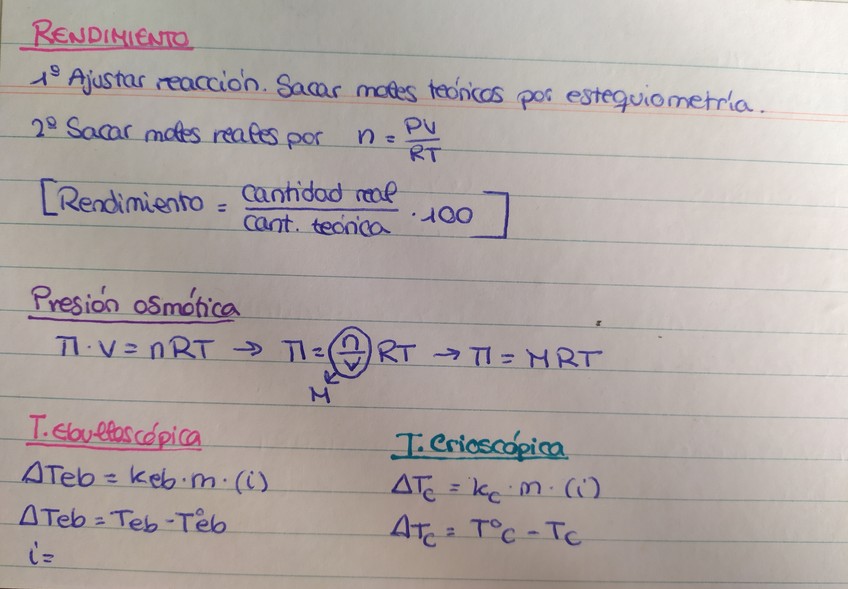 RENDIMIENTO
1º Ajustar reacción. Sacar moles teóricos por estequiometría.
2º Sacar moles reales por n = PV/RT
[Rendimiento = cantidad real/cant. teórica · 100]
Presión osmótica
Π · V = nRT → Π = (n/V) RT → Π = MRT
M
T. Ebulloscópica
ΔTeb = Keb · m · (i)
ΔTeb = Teb - Tºeb
i =
T. Crioscópica
ΔTc = Kc · m · (i)
ΔTc = Tºc - Tc